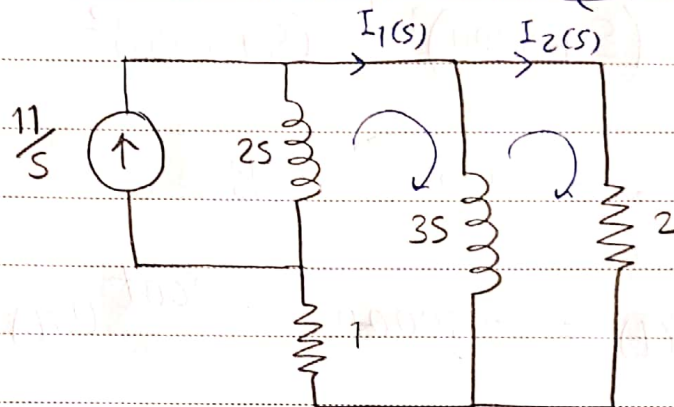 I₁(S) I₂(S)
11/S
2S
3S
2
1